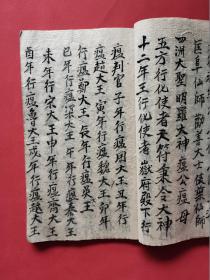 仙師勸善 仙師
四洲大聖明羅大神瘟公瘟母
五方行化使者天符秉令大神
十二年王行化使者嶽府殿下行
瘟判官子年行瘟周大王丑年行
瘟趙大王寅年行瘟魏大王卯年
行瘟鄭大王辰年行瘟吳王
巳年行瘟 大王午年行瘟秦大王
未年行宋大王申年行瘟齊大王
酉年行瘟魯大王戌年行瘟越大王